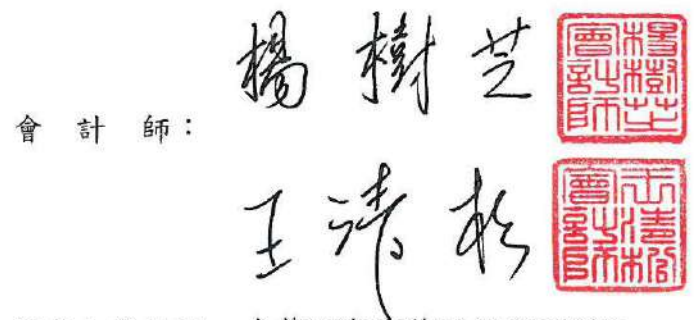 會計師：
楊樹芝
楊樹芝會計師
王清松
王清松會計師